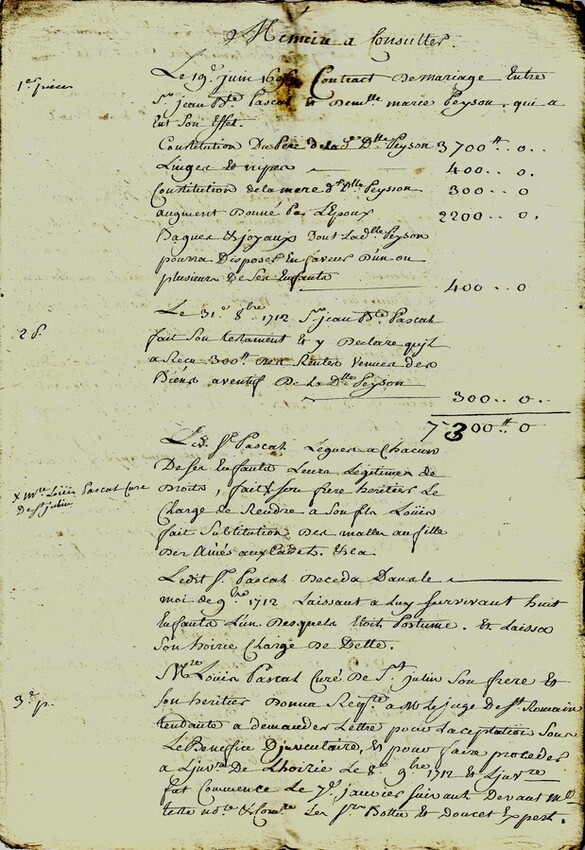 Memoire a Consulter.
1ere pièce
Le 19e Juin Contract De mariage Entre
Sr jean Bte Pascal et Demlle marie Peyson, qui a
Eut Son Effet.
Constitution Du Pere de lade Dlle Peyson 3700tt 0..
Linges Et nipes 400.. 0..
Constitution de la mere dlle Peysson 300.. 0
augment Donné Par L'Epoux 2200.. 0.
Bagues & joyaux Dont lad dlle Peyson
pourra Disposer En faveur D'un ou
plusieurs De Ses Enfants 400.. 0
2e p.
Le 31e 8bre 1712 Sr jean Bte Pascal
fait Son testament et y Declare qu'il
a Reçu 300tt Des Rentes Venues des
Biens aventif De la Dlle Peyson
300.. 0..
7300tt 0
Led. Sr Pascal Legue a Chacun
De Ses Enfants Leurs Legitimes de
Droits, fait Son frere heritier Le
Charge de Rendre a Son fils Loüis
fait Subtitution Des malles au fille
Des Ainés aux Cadet. Et ca
x Mre Loüis Pascal Curé
De St julin
Ledit Sr Pascal Deceda Dans le
moi de 9bre 1712 Laissant a Luy Survivant huit
Enfants L'un Desquels Etoit Postume. Et Laissa
Son hoirie Charge de Dette.
3e p.
Mre Loüis Pascal Curé De St julin Son frere Et
Son heritier Donna Reqte a Mr Le juge De St Romain
tendante a demander Lettre pour L'aceptation Sous
Le Benefice D'inventaire, Et pour faire proceder
a L'invre De L'hoirie Le 8e 9bre 1712 Et L'invre
fut Commence Le 7e janvier Suivant Devant
teste nore & Les Srs Bottu Et Doucet Expert.